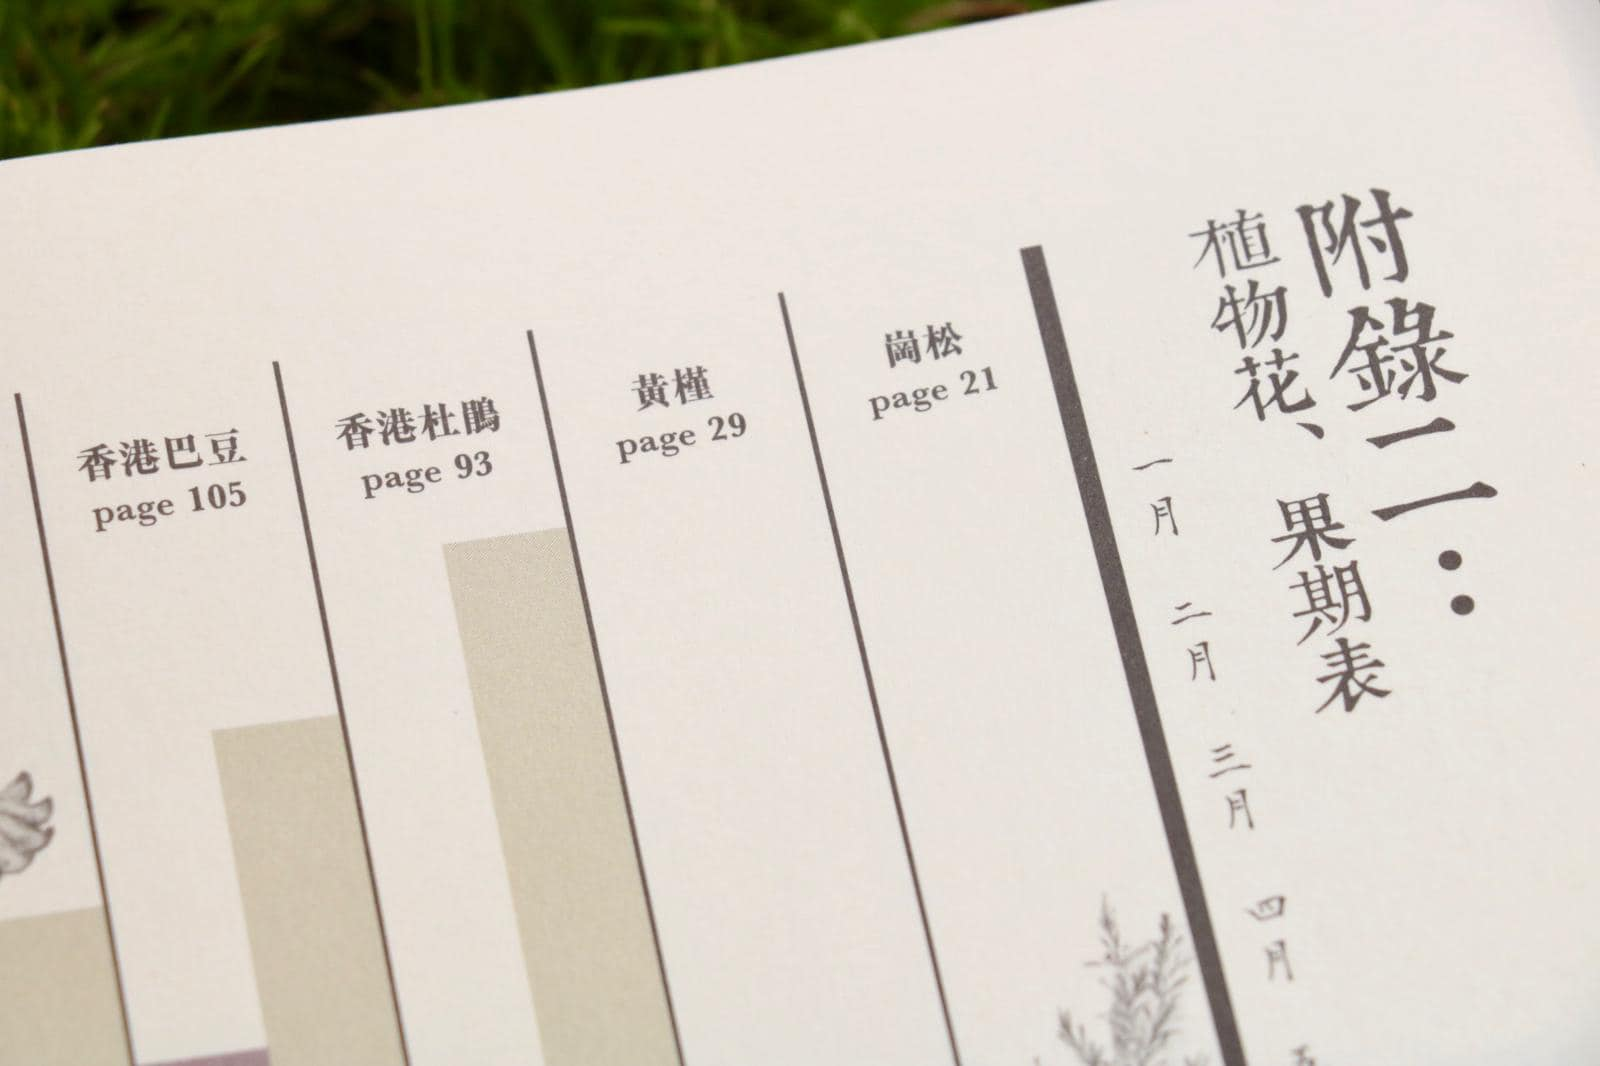 附錄二：
植物花、果期表
一月
二月
三月
四月
五
崗松
page 21
黃槿
page 29
香港杜鵑
page 93
香港巴豆
page 105